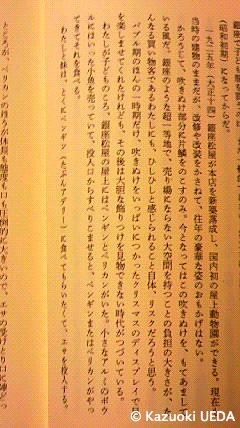 (昭和初期)にあってふらた。
一九二五年(大正十四)銀座松屋が本店を新築落成し、国内初の屋上動物園ができる。現在
当時の建物のままだが、改修や改装をかさねて、往年の豪華な姿のおもかげはない。
かろうじて、吹きぬけ部分に片鱗をのこすのみ。今となってはこの吹きぬけを、もてあまし
いる風だ。銀座のような超一等地で、売り場にならない大空間を持つことの負担の大きさが、
んなる買い物客であるわたしにも、ひしひしと感じられること自体、リスクだろうと思う。
バブル期のほんの一時期だけ、吹きぬけをいっぱいにつかったクリスマスのディスプレイで
を楽しませてくれたけれども、その後は大胆な飾りつけを見物できない時代がつづいている。
わたしが子どものころ、銀座松屋の屋上にはペンギンとペリカンがいた。小さなアルミのボウ
ルにはいった小魚を売っていて、投入口からすべりこませると、ペンギンまたはペリカンがやっ
てきてそれを食べる。
わたしと妹は、とくにペンギン(たぶんアデリー)に食べてもらいたくて、エサを投入する。
ところが、ペリカンのほうが体長も態度も口も圧倒的に大きいので、エサの受けとり口に陣どっ
© Kazuoki UEDA